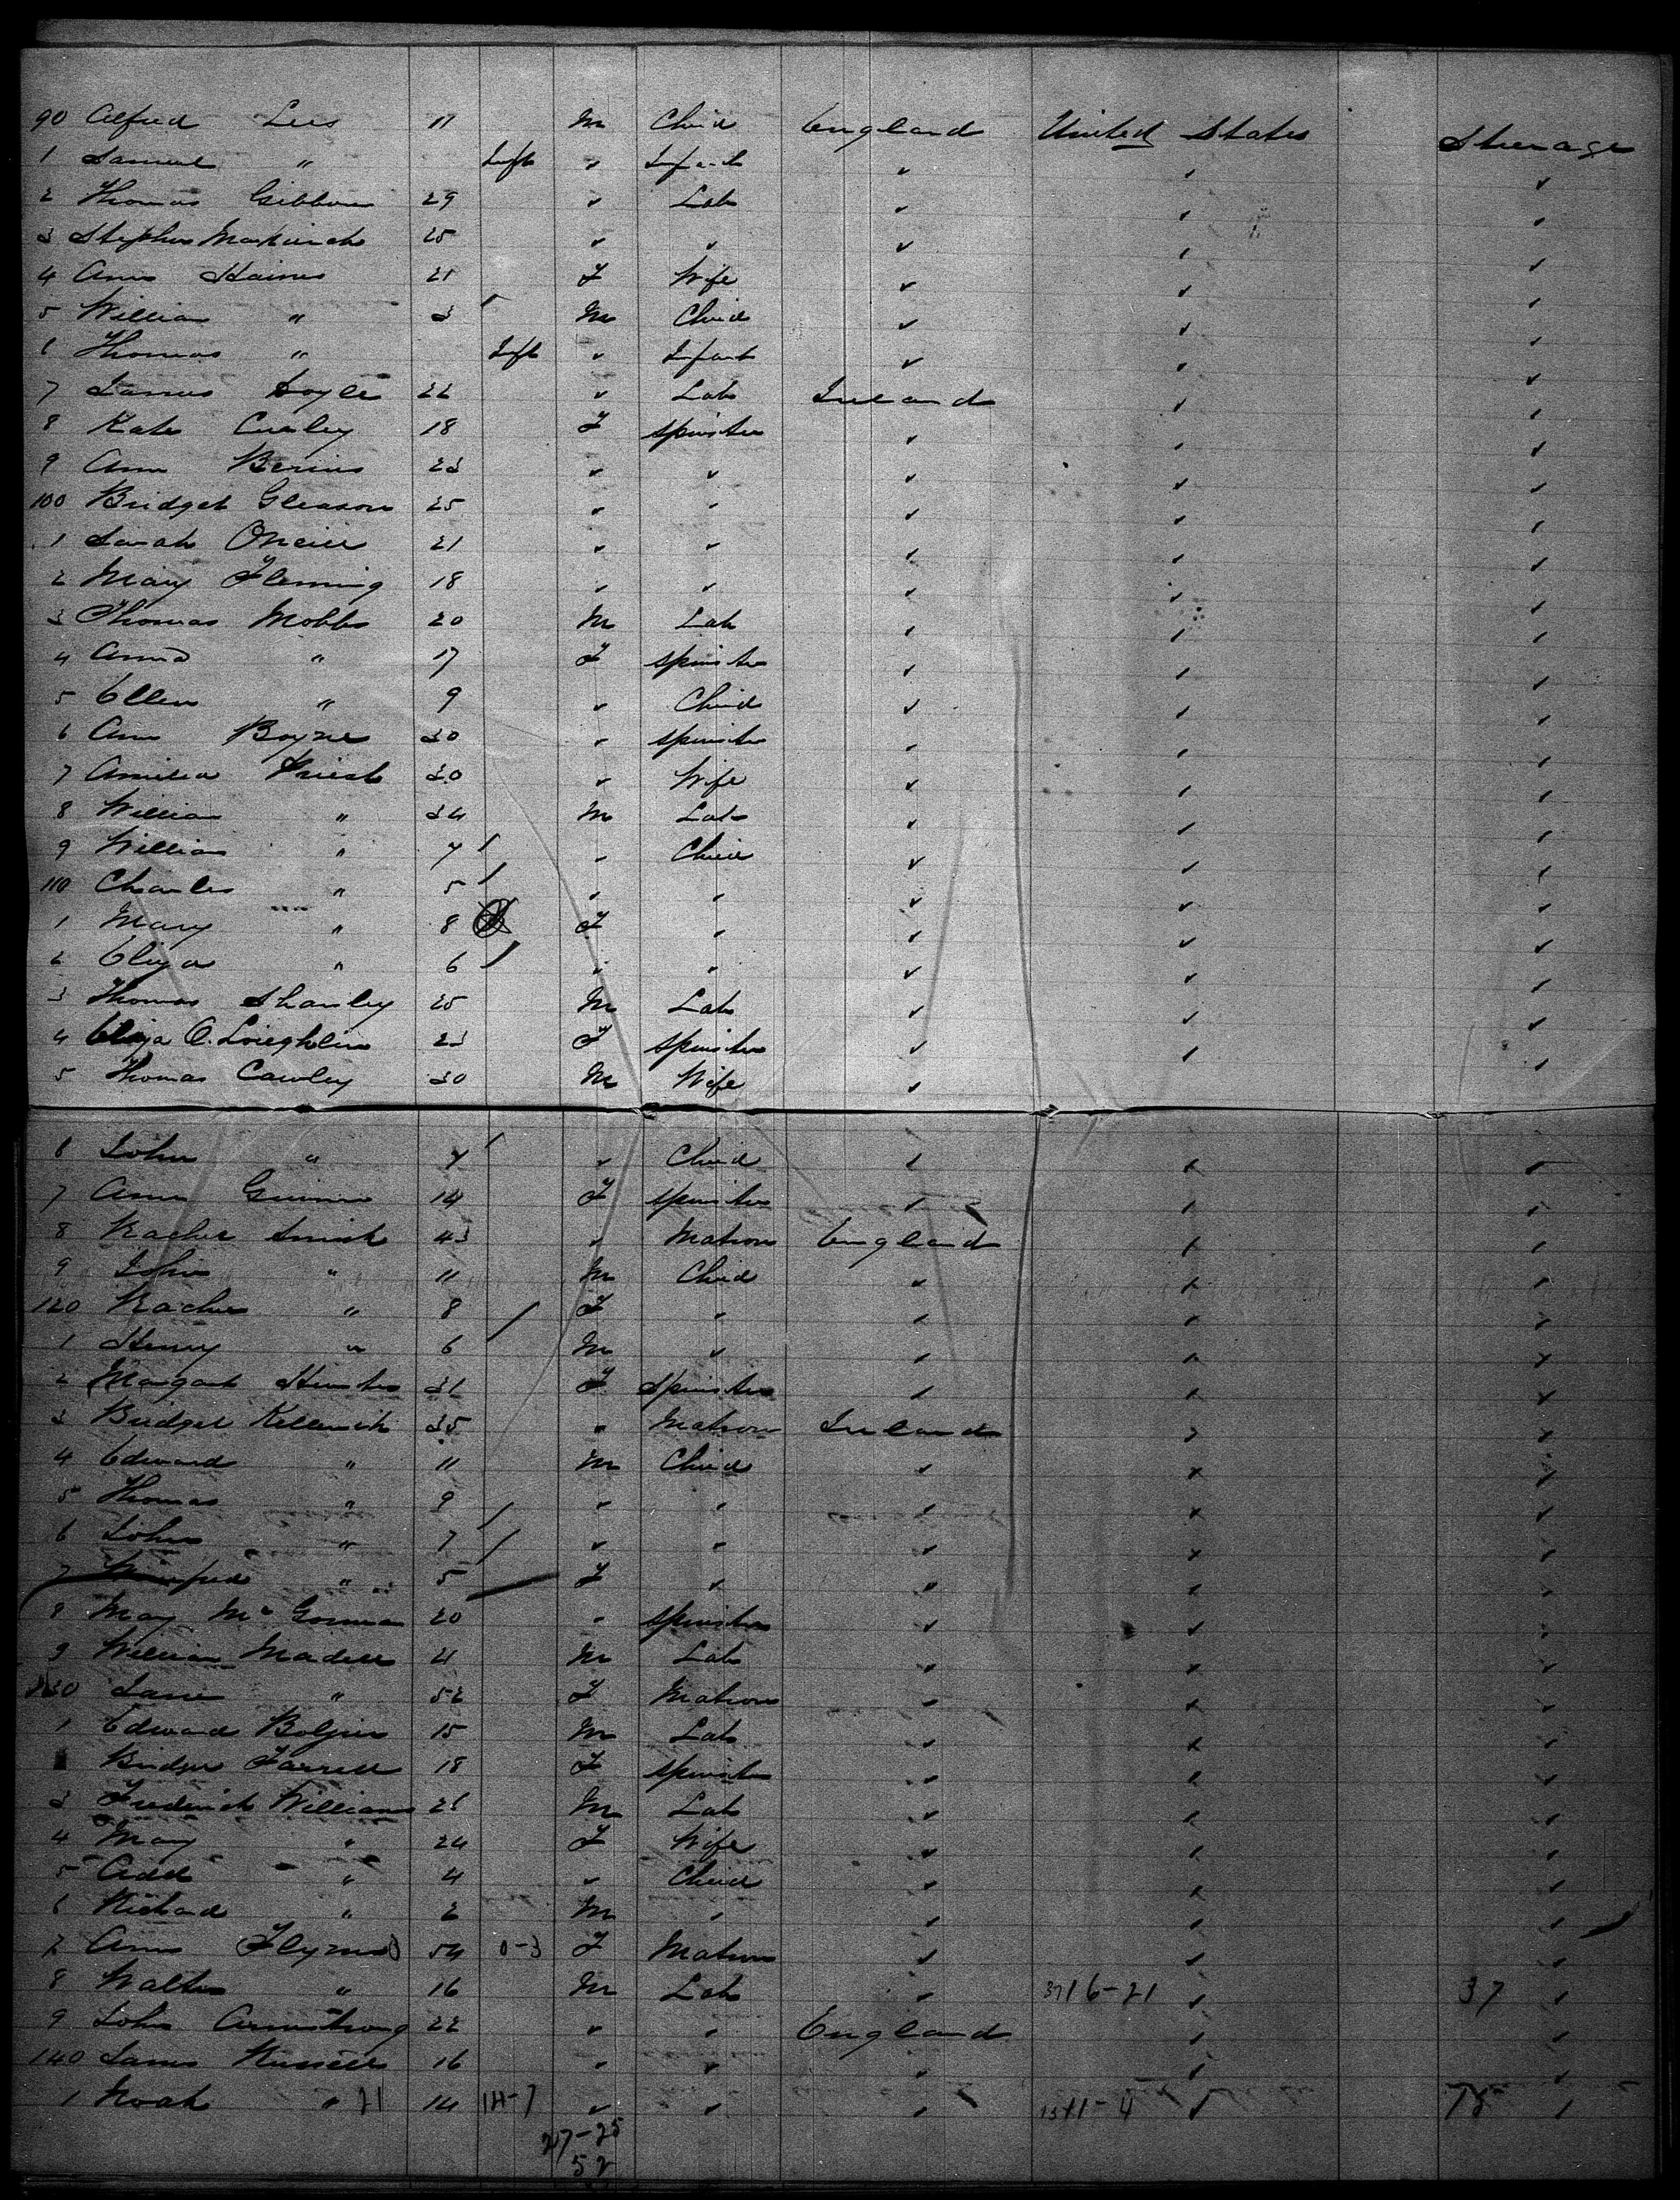 90 Alfred Lees 11 M Child England United States Steerage
1 Samuel " Inft " Infant " " "
2 Thomas Gibbons 29 " Lab " " "
3 Stephen 25 " " " " "
4 Ann Haines 21 F Wife " " "
5 William " 3 M Child " " "
6 Thomas " Inft " Infant " " "
7 James Doyle 22 " Lab Ireland " "
8 Kate Curley 18 F Spinster " " "
9 Ann 23 " " " " "
100 Bridget Gleason 25 " " " " "
1 Sarah Oneill 21 " " " " "
2 Mary Fleming 18 " " " " "
3 Thomas Mobbs 20 M Lab " " "
4 Anna " 17 F Spinster " " "
5 Ellen " 9 " Child " " "
6 Ann Boyne 30 " Spinster " " "
7 Amelia Priest 30 " Wife " " "
8 William " 34 M Lab " " "
9 William " 7 " Child " " "
110 Charles " 5 " " " " "
1 Mary " 8 F " " " "
2 Eliza " 6 " " " " "
3 Thomas Shanley 25 M Lab " " "
4 Eliza O.Loughlin 23 F Spinster " " "
5 Thomas Cawley 30 M Wife "
6 John " 7 " Child " " "
7 Ann 14 F Spinster " " "
8 Rachel Smith 43 " Matron England " "
9 John " 11 M Child " " "
120 Rachel " 8 F " " " "
1 Henry " 6 M " " " "
2 Margaret 32 F Spinster " " "
3 Bridget 35 " Matron Ireland " "
4 Edward " 11 M Child " " "
5 Thomas " 9 " " " " "
6 John " 7 " " " " "
7 Winifred " 5 F " " " "
8 Mary McGorman 20 " Spinster " " "
9 William Madell M Lab " " "
130 Jane " 52 F Matron " " "
1 Edward 15 M Lab " " "
Bridget Farrell 18 F Spinster " " "
3 Frederick Williams M Lab " " "
4 Mary " 24 F Wife " " "
5 " 4 " Child " " "
6 Richard " 2 M " " " "
7 Ann Flynn 54 0-3 F Matron " " "
8 Walter " 16 M Lab " 37 16-21 " 37 "
9 John Armstrong 22 " " England " "
140 James Russell 16 " " " " "
1 Noah " 21 14 " " " "
47-25
52